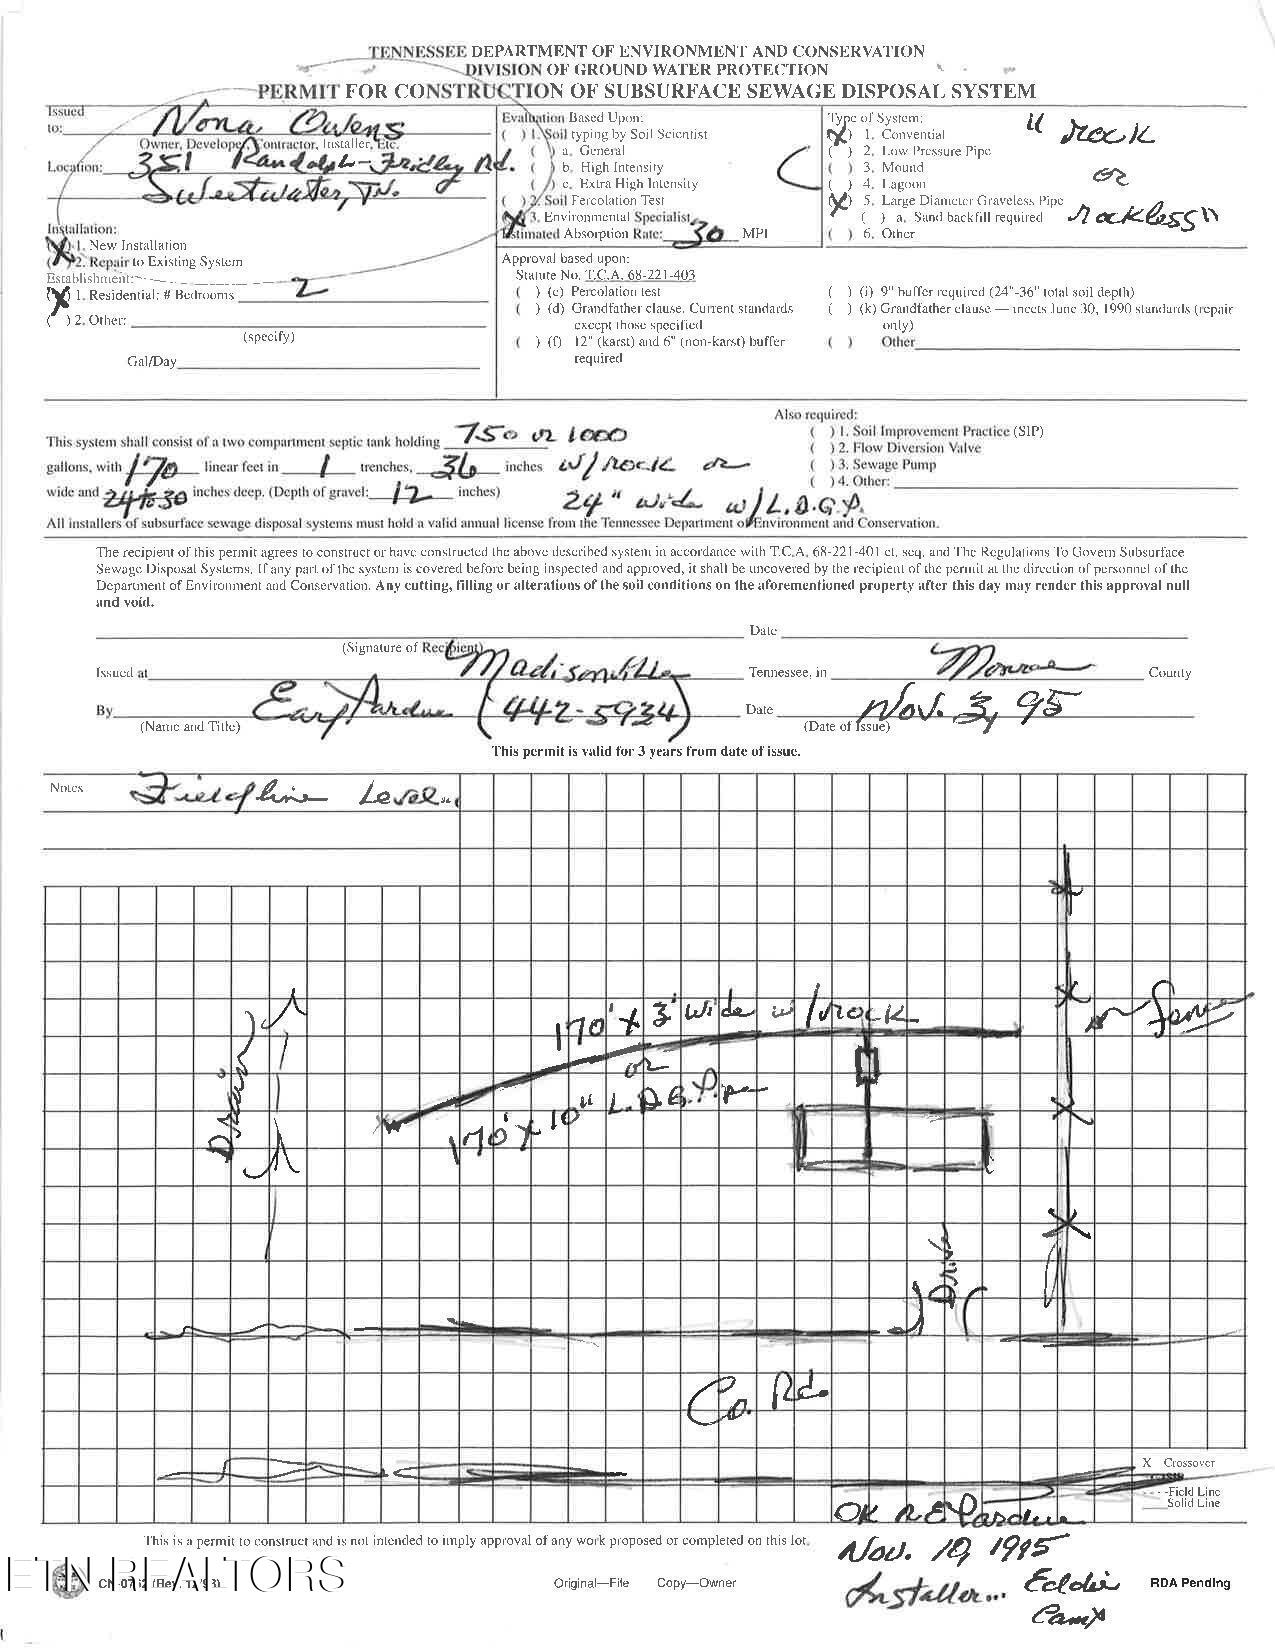 TENNESSEE DEPARTMENT OF ENVIRONMENT AND CONSERVATION
DIVISION OF GROUND WATER PROTECTION
PERMIT FOR CONSTRUCTION OF SUBSURFACE SEWAGE DISPOSAL SYSTEM
Issued
to: Nona Owens
Owner, Developer, Contractor, Installer, Etc.
Location: 351 Randolph-Fridley Rd.
Sweetwater, TN.
Installation:
(X) 1. New Installation
( ) 2. Repair to Existing System
Establishment:
(X) 1. Residential: # Bedrooms 2
( ) 2. Other:
(specify)
Gal/Day
Evaluation Based Upon:
( ) 1. Soil typing by Soil Scientist
( ) a. General
( ) b. High Intensity
( ) c. Extra High Intensity
( ) 2. Soil Percolation Test
(X) 3. Environmental Specialist
Estimated Absorption Rate: 30 MPI
Type of System:
(X) 1. Convential
( ) 2. Low Pressure Pipe
( ) 3. Mound
( ) 4. Lagoon
(X) 5. Large Diameter Graveless Pipe
( ) a. Sand backfill required
( ) 6. Other
" rock
or
rockless"
Approval based upon:
Statute No. T.C.A. 68-221-403
( ) (c) Percolation test
( ) (d) Grandfather clause. Current standards
except those specified
( ) (f) 12" (karst) and 6" (non-karst) buffer
required
( ) (i) 9" buffer required (24"-36" total soil depth)
( ) (k) Grandfather clause — meets June 30, 1990 standards (repair
only)
( ) Other
This system shall consist of a two compartment septic tank holding 750 or 1000
gallons, with 170 linear feet in 1 trenches, 36 inches w/rock or
wide and 24 to 30 inches deep. (Depth of gravel: 12 inches) 24" wide w/L.D.G.P.
Also required:
( ) 1. Soil Improvement Practice (SIP)
( ) 2. Flow Diversion Valve
( ) 3. Sewage Pump
( ) 4. Other:
All installers of subsurface sewage disposal systems must hold a valid annual license from the Tennessee Department of Environment and Conservation.
The recipient of this permit agrees to construct or have constructed the above described system in accordance with T.C.A. 68-221-401 et. seq. and The Regulations To Govern Subsurface
Sewage Disposal Systems. If any part of the system is covered before being inspected and approved, it shall be uncovered by the recipient of the permit at the direction of personnel of the
Department of Environment and Conservation. Any cutting, filling or alterations of the soil conditions on the aforementioned property after this day may render this approval null
and void.
Date
(Signature of Recipient)
Issued at Madisonville Tennessee, in Monroe County
By Earl Pardue (442-5934) Date Nov. 3, 95
(Name and Title) (Date of Issue)
This permit is valid for 3 years from date of issue.
Notes Fieldline Level
170' X 3' wide w/rock
or
170' X 10" L.D.G. Pipe
Drain
fence
Drive
Co. Rd.
X Crossover
- - - -Field Line
Solid Line
OK R E Pardue
Nov. 10, 1995
Installer... Eddie
Camp
This is a permit to construct and is not intended to imply approval of any work proposed or completed on this lot.
ETN REALTORS
Original—File Copy—Owner
RDA Pending